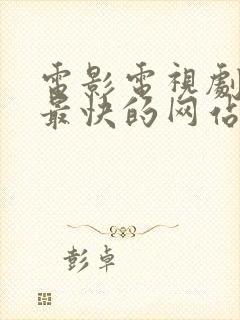 電影電視劇
最快的网佔
彭卓